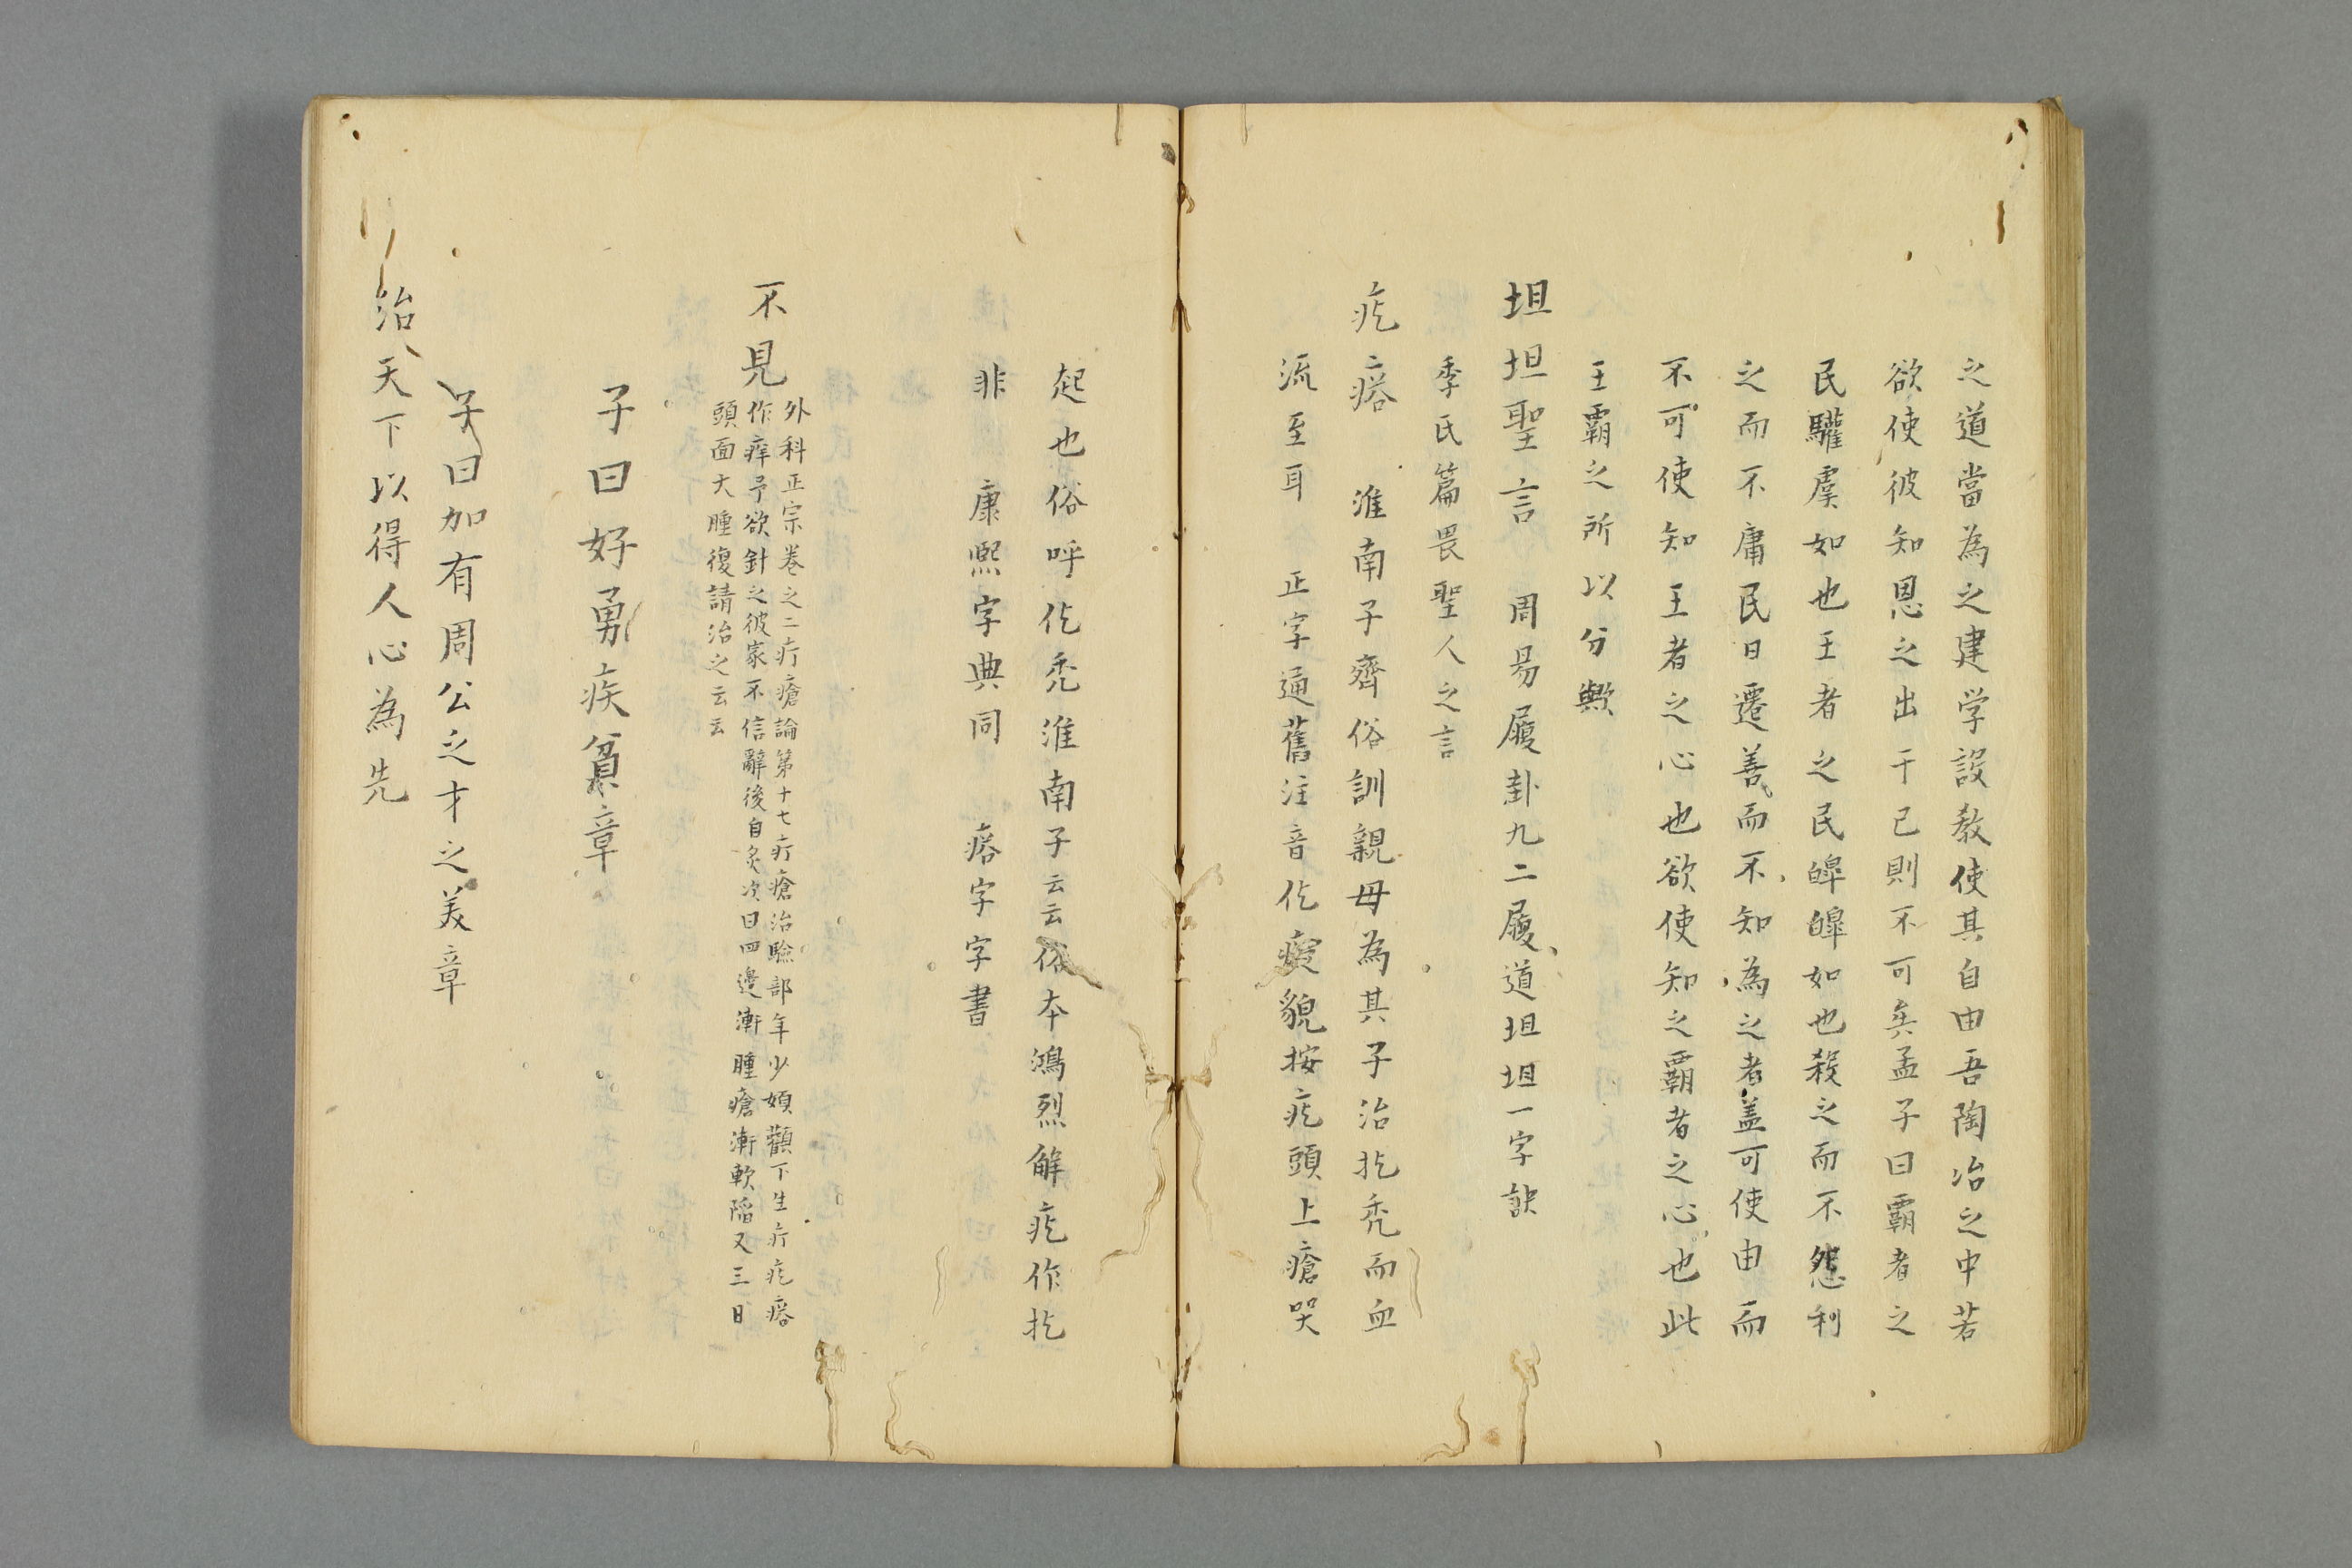 之道當為之建学設教使其自由吾陶冶之中若
欲使彼知恩之出于已則不可矣孟子曰霸者之
民驩虞如也王者之民皡皡如也殺之而不怨利
之而不庸民日遷善而不知為之者盖可使由而
不可使知王者之心也欲使知之霸者之心也此
王霸之所以分歟
坦坦聖言 周易履卦九二履道坦坦一字訣
季氏篇畏聖人之言
疙瘩 淮南子齊俗訓親母為其子治扢禿而血
流至耳 正字通舊注音仡癡貌按疙頭上瘡哭
起也俗呼仡禿淮南子云云俗本鴻烈解疙作扢
非 康熙字典同 瘩字字書
不見
外科正宗卷之二疔瘡論第十七疔瘡治驗部年少頰顴下生疔疙瘩
作痒予欲針之彼家不信辭後自灸次日四邊漸腫瘡漸軟陷又三日
頭面大腫復請治之云云
子曰好勇疾貧章
子曰加有周公之才之美章
治天下以得人心為先